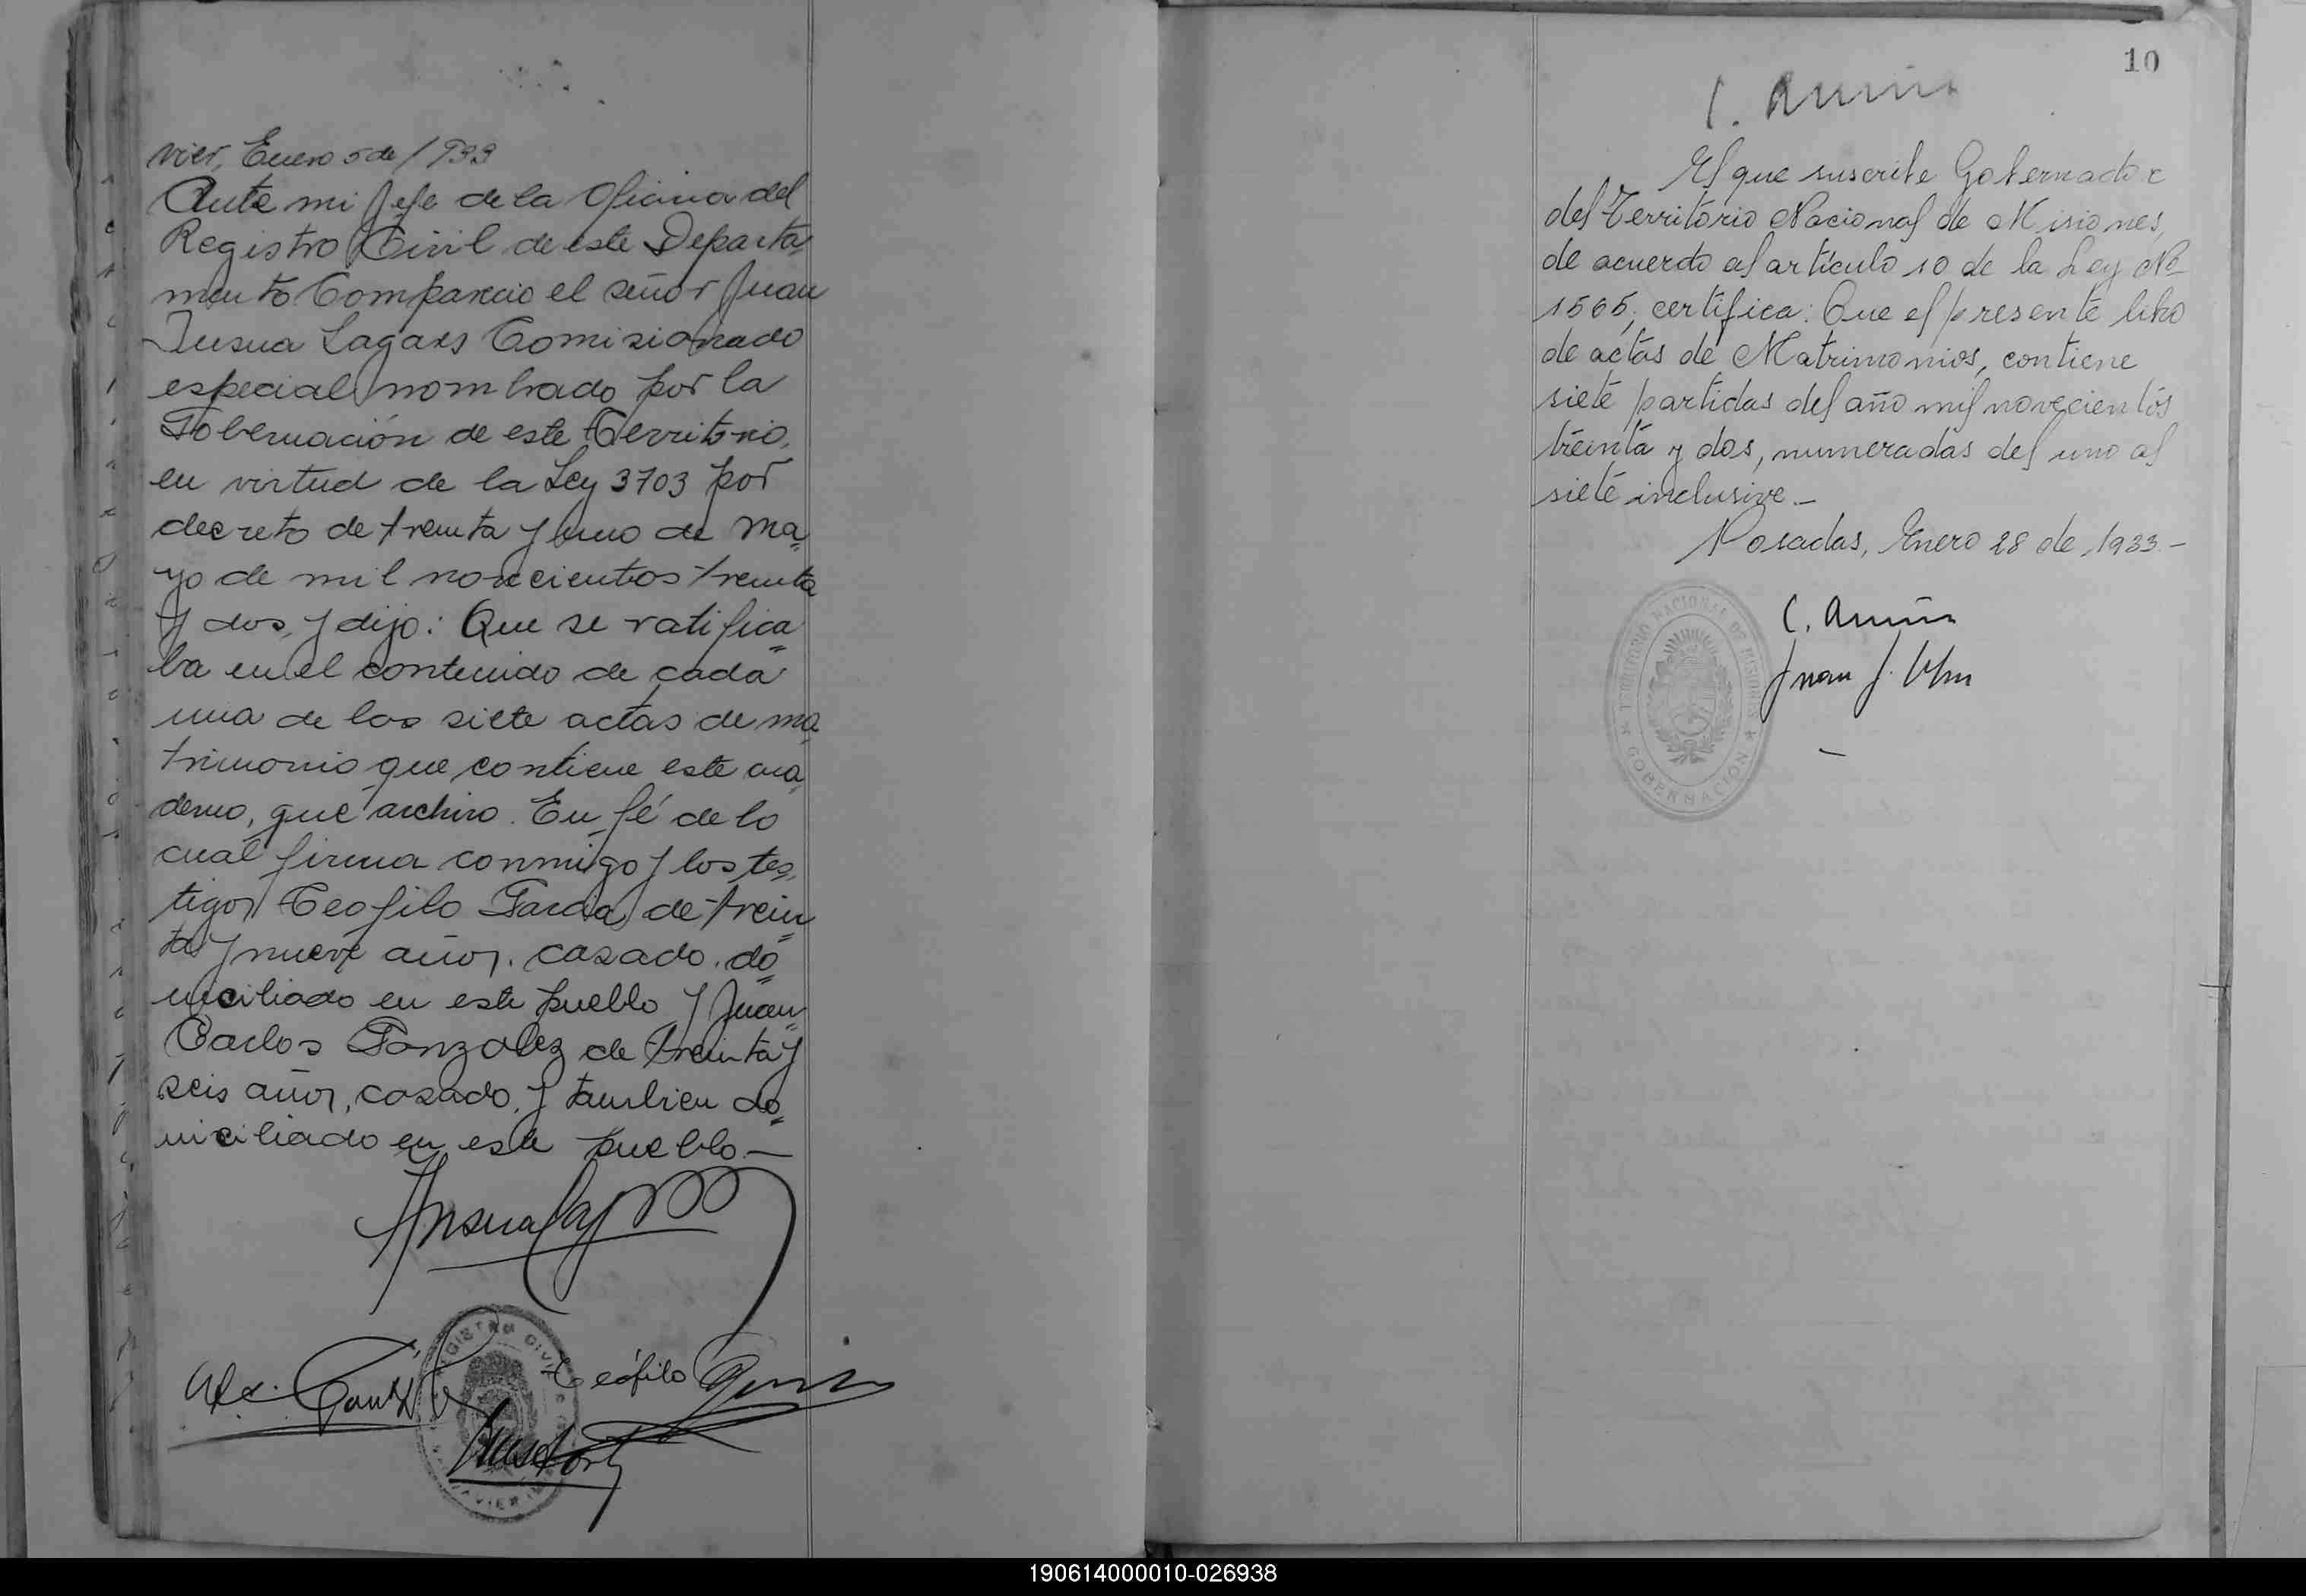 vier, Enero 5 de 1933
Ante mi Jefe de la Oficina del
Registro Civil de este Departa
mento Comparecio el señor Juan
Insua Lagares Comisionado
especial nombrado por la
Gobernación de este Territorio,
en virtud de la Ley 3703 por
decreto de treinta y uno de ma
yo de mil novecientos treinta
y dos, y dijo: Que se ratifica
ba en el contenido de cada
una de las siete actas de ma
trimonio que contiene este cua
derno, que archivo. En fé de lo
cual firma conmigo y los tes
tigos Teofilo de trein
ta y nueve años. casado. do
miciliado en este pueblo y Juan
Carlos Gonzalez de treinta y
seis años, casado, y tambien do
miciliado en este pueblo.—
REGISTRO CIVIL
Teófilo
10
El que suscribe Gobernador
del Territorio Nacional de Misiones,
de acuerdo al artículo 10 de la Ley Nº
1565, certifica: Que el presente libro
de actas de Matrimonios, contiene
siete partidas del año mil novecientos
treinta y dos, numeradas del uno al
siete inclusive.—
Posadas, Enero 28 de 1933.—
TERRITORIO NACIONAL DE MISIONES
GOBERNACIÓN
Juan J.
190614000010-026938